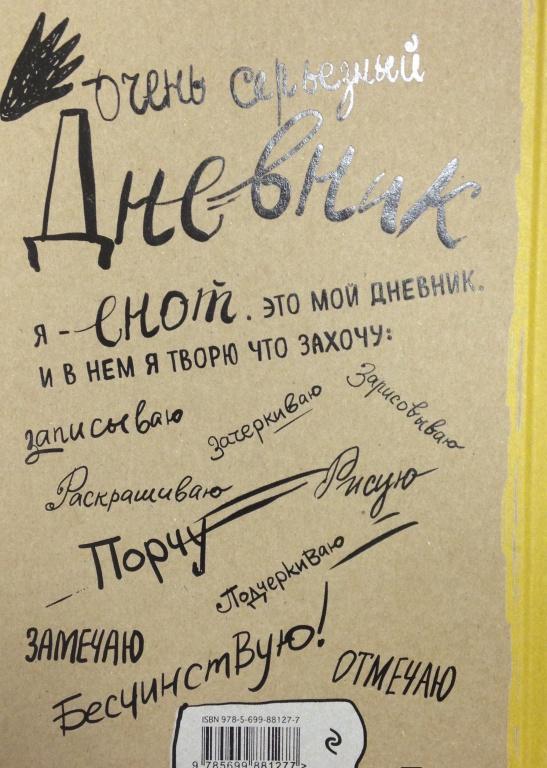 очень серьезный
Дневник
Я - енот. ЭТО МОЙ ДНЕВНИК.
И В НЕМ Я ТВОРЮ ЧТО ЗАХОЧУ:
записываю
Зачеркиваю
Зарисовываю
Раскрашиваю
Рисую
Порчу
Подчеркиваю
ЗАМЕЧАЮ
Бесчинствую!
ОТМЕЧАЮ
ISBN 978-5-699-88127-7
9 785699 881277 >